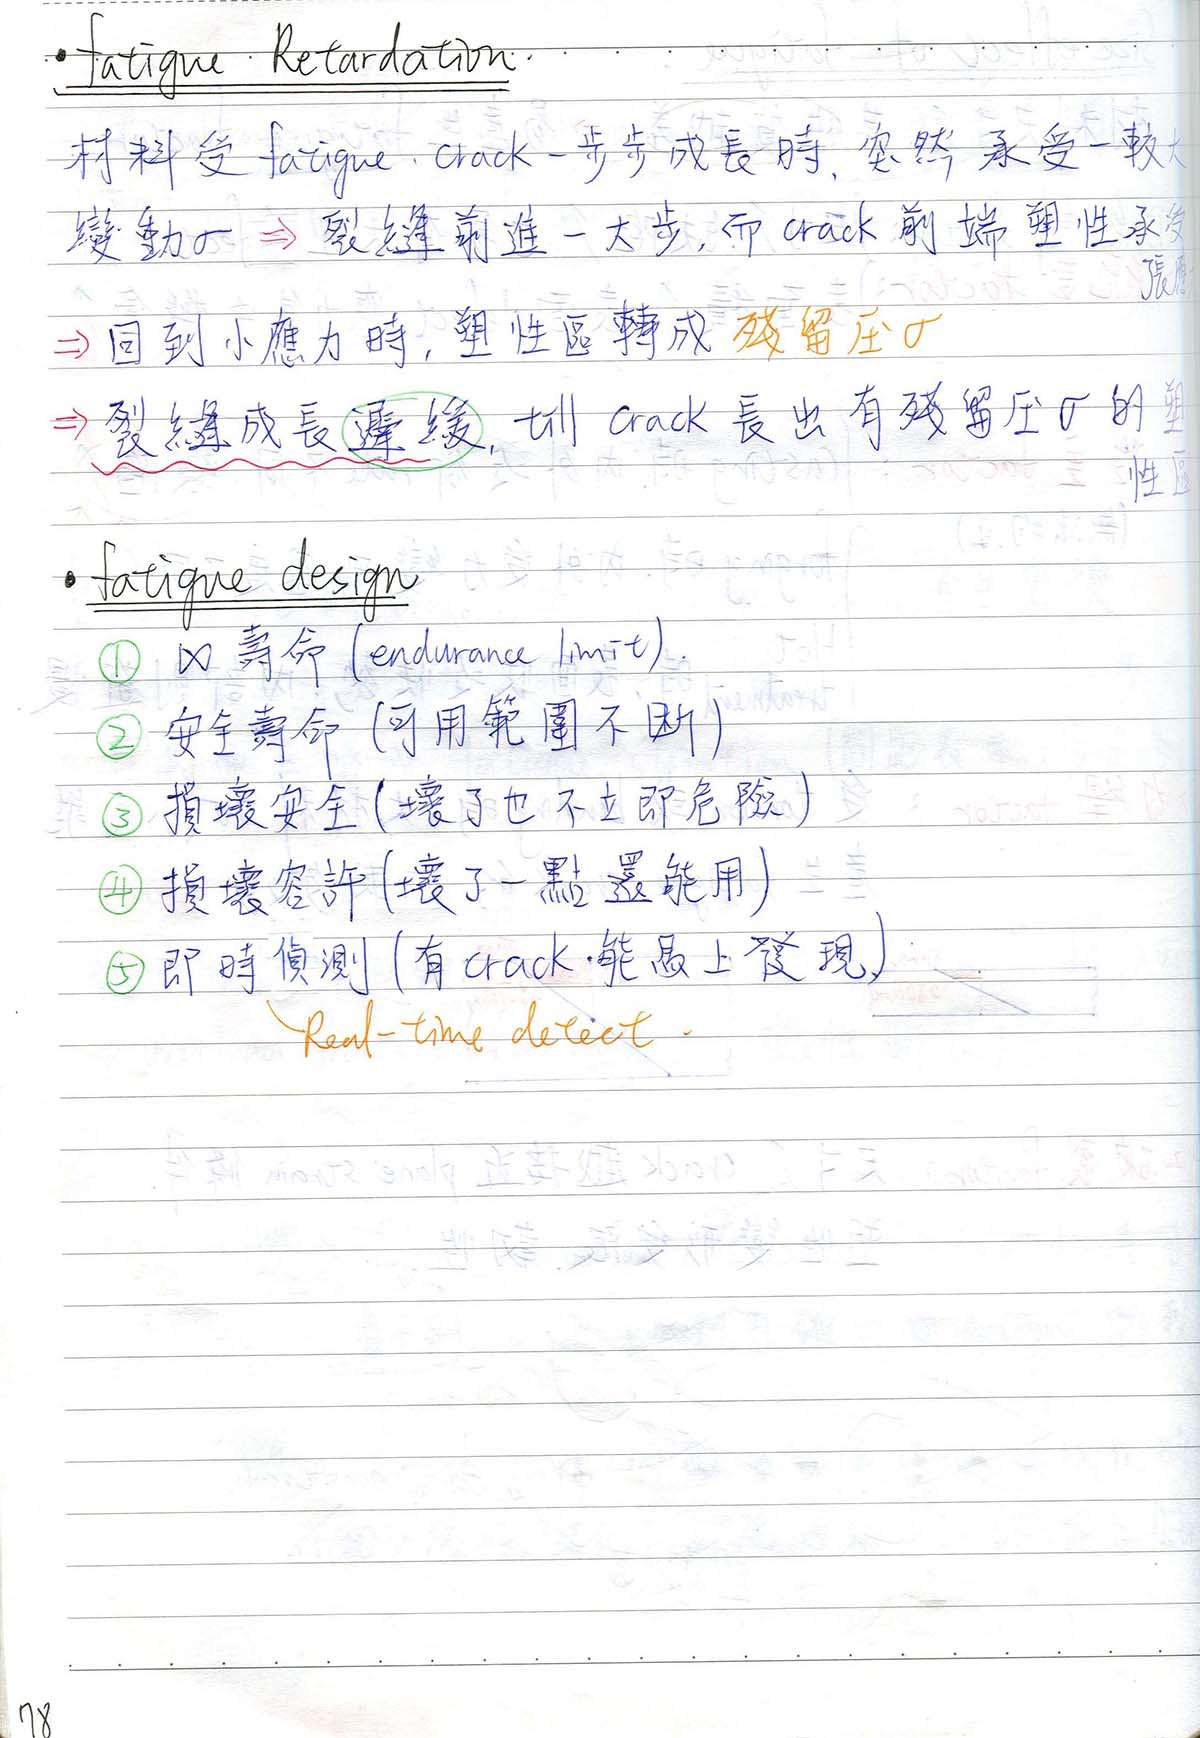 • fatigue Retardation.
材料受 fatigue. crack 一步步成長時, 突然承受一較大
變動σ ⇒ 裂縫前進一大步, 而 crack 前端塑性承受
張應
⇒ 回到小應力時, 塑性區轉成 殘留压σ
⇒ 裂縫成長遲緩, till crack 長出有殘留压σ的塑
性區
• fatigue design
① ∞ 壽命 (endurance limit).
② 安全壽命 (可用範圍不斷)
③ 損壞安全 (壞了也不立即危險)
④ 損壞容許 (壞了一點還能用)
⑤ 即時偵測 (有 crack.能馬上發現)
Real-time detect.
78